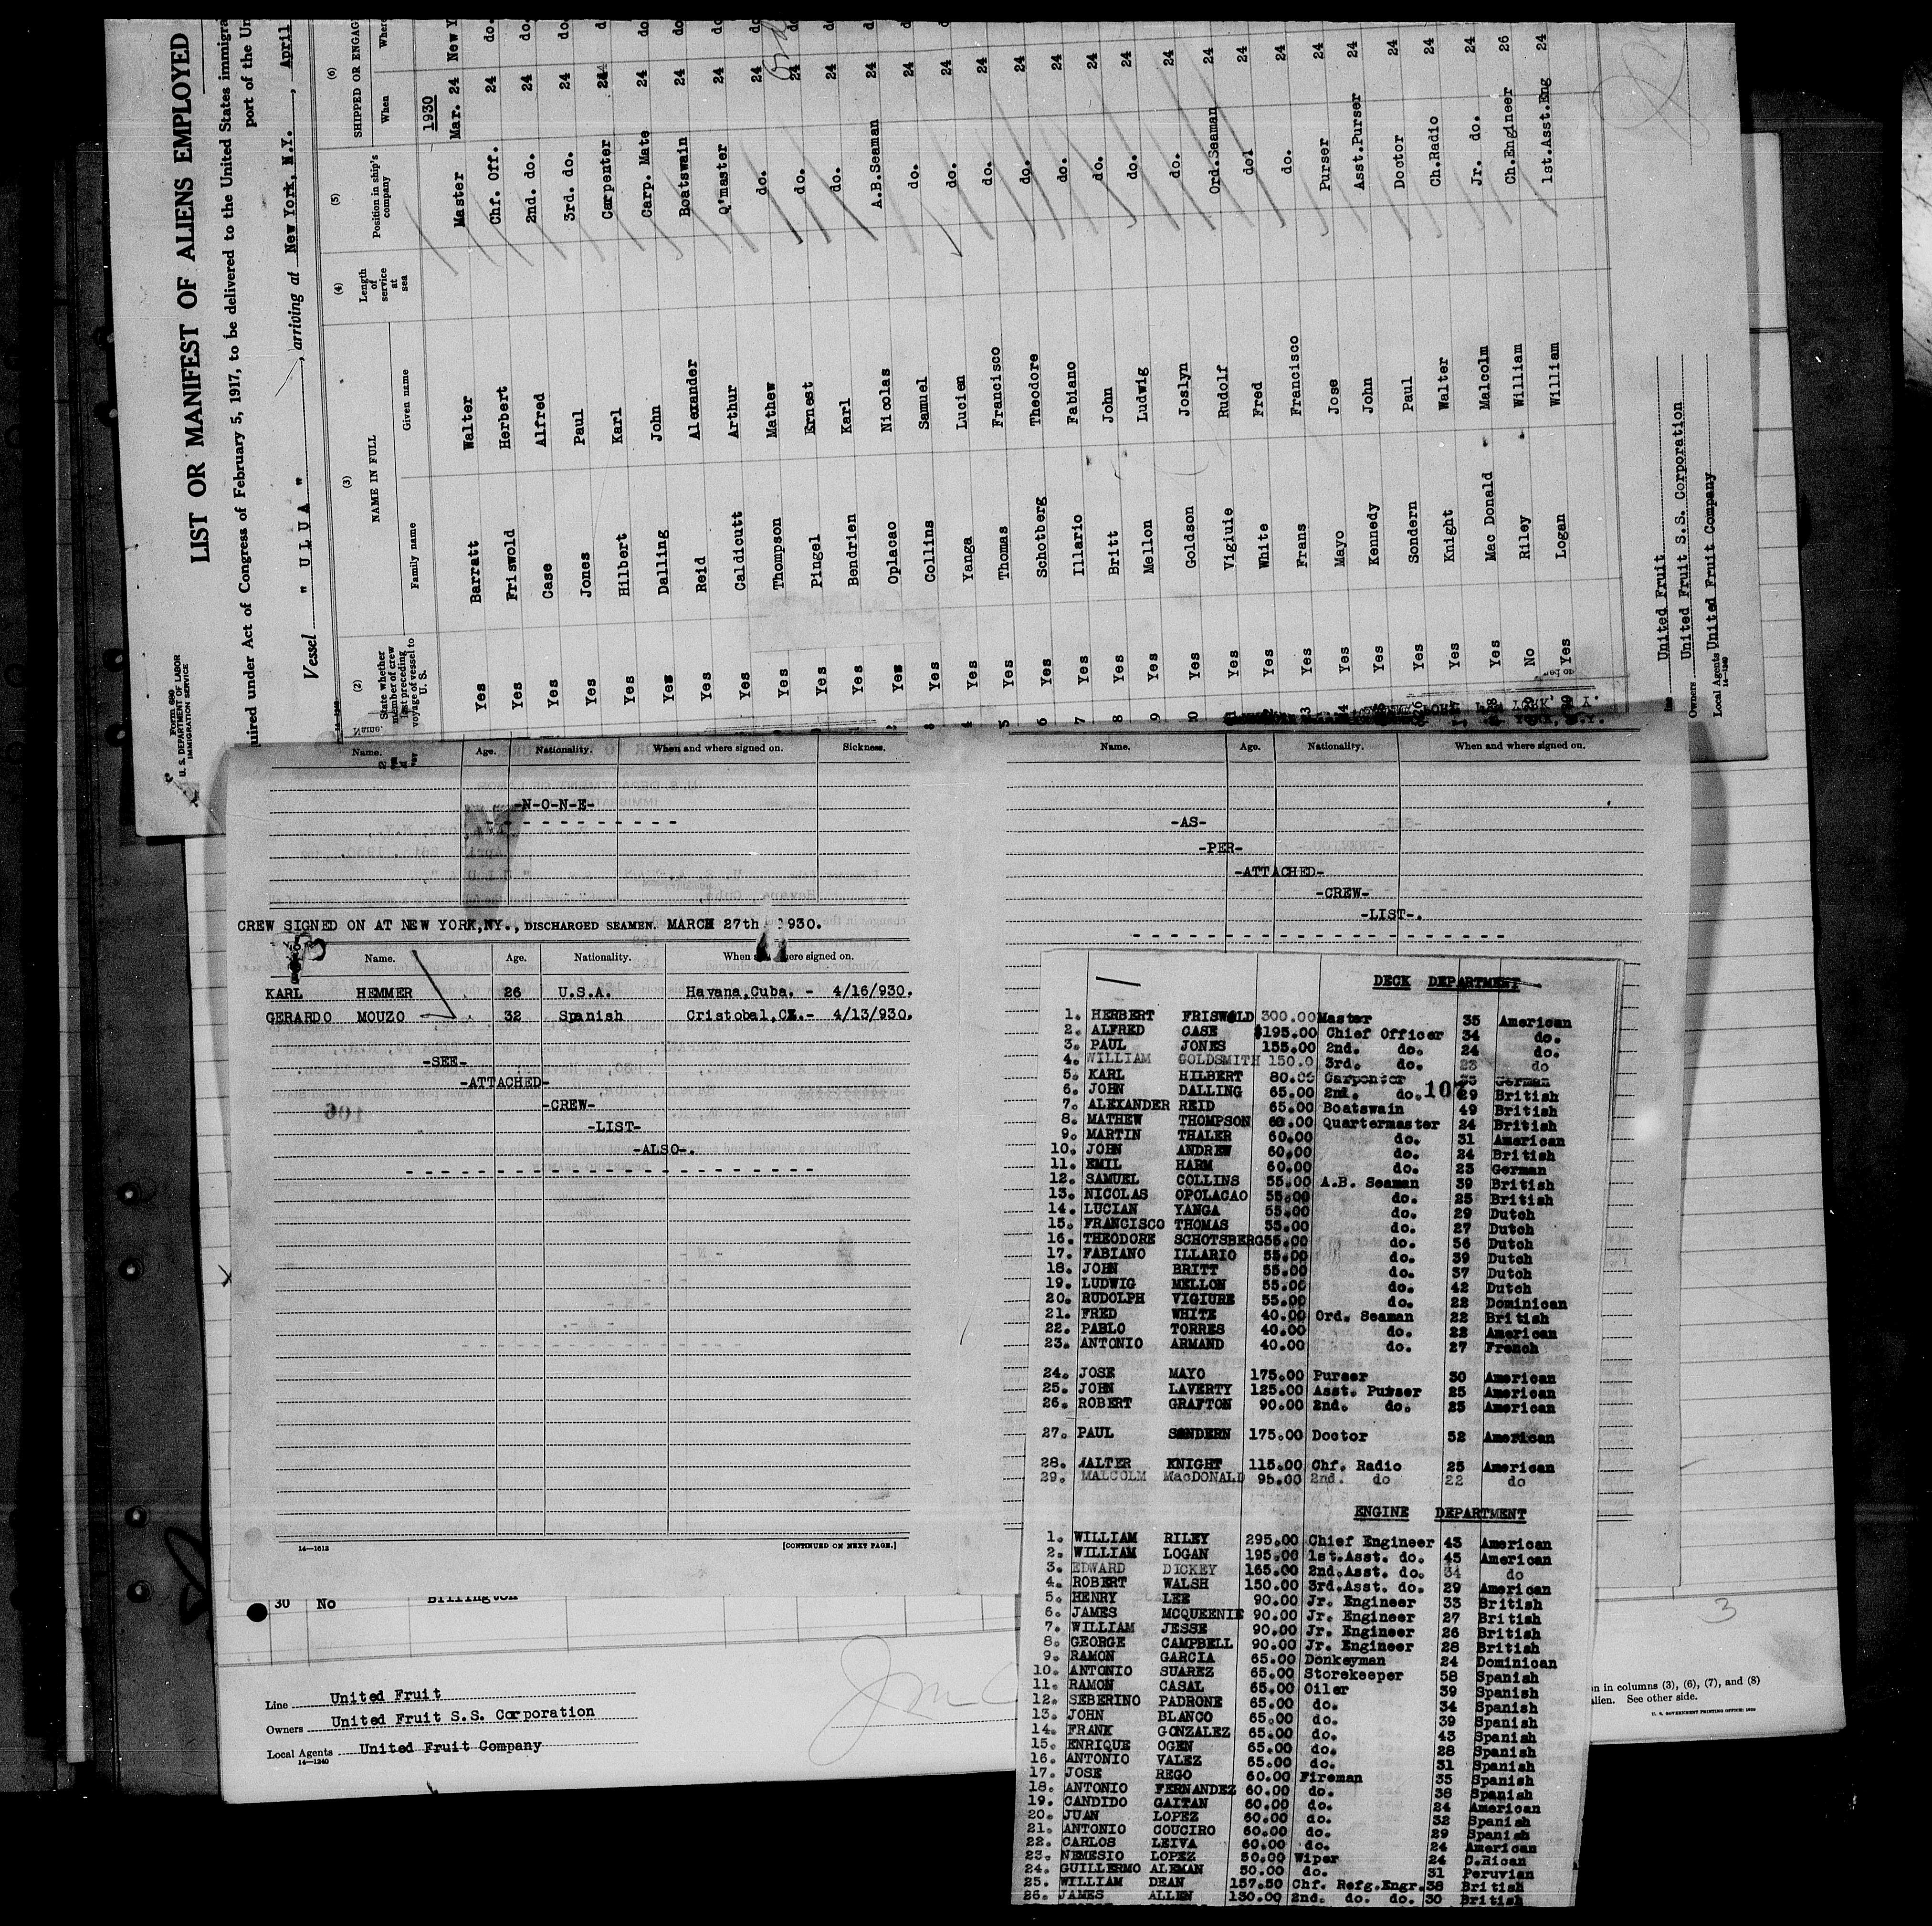 Form 689
U. S. DEPARTMENT OF LABOR
IMMIGRATION SERVICE
LIST OR MANIFEST OF ALIENS EMPLOYED
quired under Act of Congress of February 5, 1917, to be delivered to the United States immigra
port of the Un
Vessel " U L U A " , arriving at New York, N.Y. , April
(2) (3) (4) (5) (6)
State whether member of crew last preceding voyage of vessel to U. S. NAME IN FULL Length of service at sea Position in ship's company SHIPPED OR ENGAG
Family name Given name When Where
1930
Yes Barratt Walter Master Mar. 24 New Y
Yes Friswold Herbert Chf. Off. 24 do.
Yes Case Alfred 2nd. do. 24 do.
Yes Jones Paul 3rd. do. 24 do.
Yes Hilbert Karl Carpenter 24 d
Yes Dalling John Carp. Mate 24 do
Yes Reid Alexander Boatswain 24 do
Yes Caldicutt Arthur Q'master 24 do
Yes Thompson Mathew do. 24 do
Yes Pingel Ernest do. 24 do
Yes Bendrien Karl do. 24 d
2 Yes Oplacao Nicolas A.B.Seaman 24 d
3 Yes Collins Samuel do. 24 d
4 Yes Yanga Lucien do. 24 d
5 Yes Thomas Francisco do. 24
6 Yes Schotberg Theodore do. 24
7 Yes Illario Fabiano do. 24
8 Yes Britt John do. 24
9 Yes Mellon Ludwig do. 24
10 Yes Goldson Joslyn do. 24
Yes Vigiuie Rudolf Ord.Seaman 24
Yes White Fred dol 24
13 Yes Frans Francisco do. 24
14 Yes Mayo Jose Purser 24
Yes Kennedy John Asst.Purser 24
26 Yes Sondern Paul Doctor 24
Yes Knight Walter Ch.Radio 24
28 Yes Mac Donald Malcolm Jr. do. 24
No Riley William Ch.Engineer 26
29 Yes Logan William 1st.Asst.Eng 24
United Fruit
Owners United Fruit S.S. Corporation
Local Agents United Fruit Company
14—1240
Name. Age. Nationality. When and where signed on. Sickness.
-N-O-N-E-
CREW SIGNED ON AT NEW YORK,NY., DISCHARGED SEAMEN. MARCH 27th 1930.
Name. Age. Nationality. When and where signed on.
KARL HEMMER 26 U.S.A. Havana,Cuba. - 4/16/930.
GERARDO MOUZO 32 Spanish Cristobal,CZ.- 4/13/930.
-SEE-
-ATTACHED-
-CREW-
-LIST-
-ALSO-.
106
14—1613
[CONTINUED ON NEXT PAGE.]
Name. Age. Nationality. When and where signed on.
-AS-
-PER-
-ATTACHED-
-CREW-
-LIST-.
DECK DEPARTMENT
1. HERBERT FRISWOLD 300.00 Master 35 American
2. ALFRED CASE $195.00 Chief Officer 34 do.
3. PAUL JONES 155.00 2nd. do. 24 do.
4. WILLIAM GOLDSMITH 150.0 3rd. do. 23 do
5. KARL HILBERT 80.00 Carpenter 35 German
6. JOHN DALLING 65.00 2nd. do. 29 British
107
7. ALEXANDER REID 65.00 Boatswain 49 British
8. MATHEW THOMPSON 60.00 Quartermaster 24 British
9. MARTIN THALER 60.00 do. 31 American
10. JOHN ANDREW 60.00 do. 24 British
11. EMIL HARM 60.00 do. 23 German
12. SAMUEL COLLINS 55.00 A.B. Seaman 39 British
13. NICOLAS OPOLACAO 55.00 do. 25 British
14. LUCIAN YANGA 55.00 do. 29 Dutch
15. FRANCISCO THOMAS 55.00 do. 27 Dutch
16. THEODORE SCHOTSBERG 55.00 do. 56 Dutch
17. FABIANO ILLARIO 55.00 do. 39 Dutch
18. JOHN BRITT 55.00 do. 37 Dutch
19. LUDWIG MELLON 55.00 do. 42 Dutch
20. RUDOLPH VIGIURE 55.00 do. 22 Dominican
21. FRED WHITE 40.00 Ord. Seaman 22 British
22. PABLO TORRES 40.00 do. 22 American
23. ANTONIO ARMAND 40.00 do. 27 French
24. JOSE MAYO 175.00 Purser 30 American
25. JOHN LAVERTY 125.00 Asst. Purser 25 American
26. ROBERT GRAFTON 90.00 2nd. do. 25 American
27. PAUL SONDERN 175.00 Doctor 52 American
28. WALTER KNIGHT 115.00 Chf. Radio 25 American
29. MALCOLM MacDONALD 95.00 2nd. do 22 do
ENGINE DEPARTMENT
1. WILLIAM RILEY 295.00 Chief Engineer 43 American
2. WILLIAM LOGAN 195.00 1st.Asst. do. 45 American
3. EDWARD DICKEY 165.00 2nd.Asst. do. 34 do
4. ROBERT WALSH 150.00 3rd.Asst. do. 29 American
5. HENRY LEE 90.00 Jr. Engineer 33 British
6. JAMES MCQUEENIE 90.00 Jr. Engineer 27 British
7. WILLIAM JESSE 90.00 Jr. Engineer 26 British
8. GEORGE CAMPBELL 90.00 Jr. Engineer 28 British
9. RAMON GARCIA 65.00 Donkeyman 24 Dominican
10. ANTONIO SUAREZ 65.00 Storekeeper 58 Spanish
11. RAMON CASAL 65.00 Oiler 39 Spanish
12. SEBERINO PADRONE 65.00 do. 34 Spanish
13. JOHN BLANCO 65.00 do. 39 Spanish
14. FRANK GONZALEZ 65.00 do. 43 Spanish
15. ENRIQUE OGEN 65.00 do. 28 Spanish
16. ANTONIO VALEZ 65.00 do. 31 Spanish
17. JOSE REGO 60.00 Fireman 35 Spanish
18. ANTONIO FERNANDEZ 60.00 do. 38 Spanish
19. CANDIDO GAITAN 60.00 do. 24 American
20. JUAN LOPEZ 60.00 do. 32 Spanish
21. ANTONIO COUCIRO 60.00 do. 29 Spanish
22. CARLOS LEIVA 60.00 do. 24 American
23. NEMESIO LOPEZ 50.00 Wiper 24 C.Rican
24. GUILLERMO ALEMAN 50.00 do. 31 Peruvian
25. WILLIAM DEAN 157.50 Chf. Refg.Engr. 38 British
26. JAMES ALLEN 130.00 2nd. do. do. 30 British
30 No Billington
Line United Fruit
Owners United Fruit S.S. Corporation
Local Agents United Fruit Company
14—1240
3
n in columns (3), (6), (7), and (8)
alien. See other side.
U. S. GOVERNMENT PRINTING OFFICE: 1929